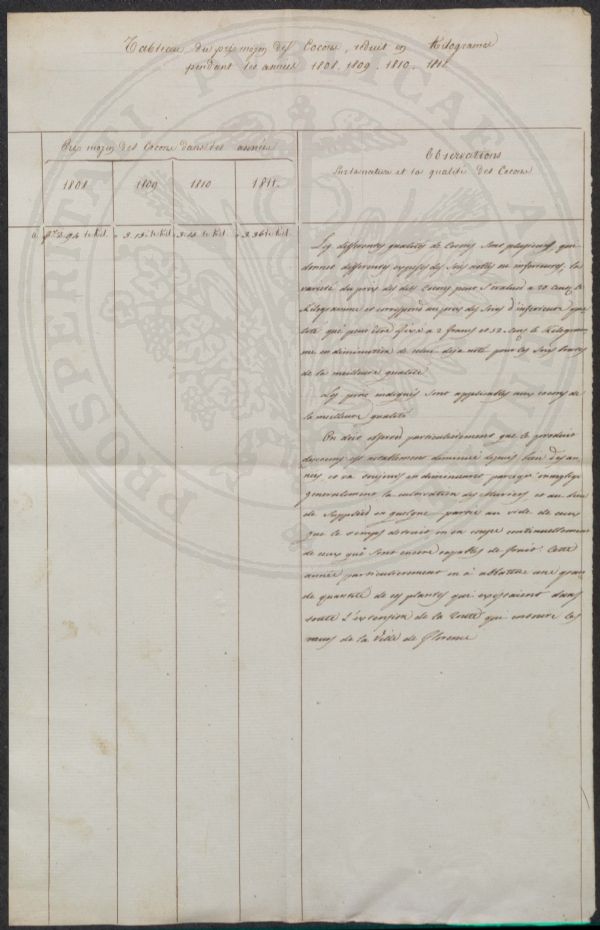 Tableau du prix moyen des Cocons, réduit en Kilogrames
pendant les années 1808. 1809. 1810. 1811.
Prix moyen des Cocons dans les années
1808
1809
1810
1811.
Observations
Sur la nature et les qualités des Cocons
3.13 le Kil.
3.36 le Kil.
Les differentes qualités de Cocons sont plusieurs qui
donnent differentes especes des Soies nobles ou inferieures, la
varieté du prix des dits Cocons peut s'evaluer a 20 Cents le
Kilogramme et correspond au prix des Soies d'inferieure qua
lité qui peut être fixé a 2 francs et 52 Sous le Kilogram
me en diminution de celui deja noté pour les Soies
de la meilleure qualité
Les prix indiqués sont applicables aux cocons de
la meilleure qualité
On doit observer particulierement que le produit
des cocons est notablement diminué depuis bien des an
nées et va toujours en diminuant parceque on neglige
generalement la cultivation des Muriers et au lieu
de suppléer en quelque partie au vide de ceux
que le temps detruit on en coupe continuellement
de ceux qui sont encore capables de fruit. Cette
année particulierement on a abbattu une gran
de quantité de ces plantes qui existaient dans
toute l'extension de la route qui entoure les
murs de la Ville de Florence
PROSPERITATI PUBLICAE AUCTAE